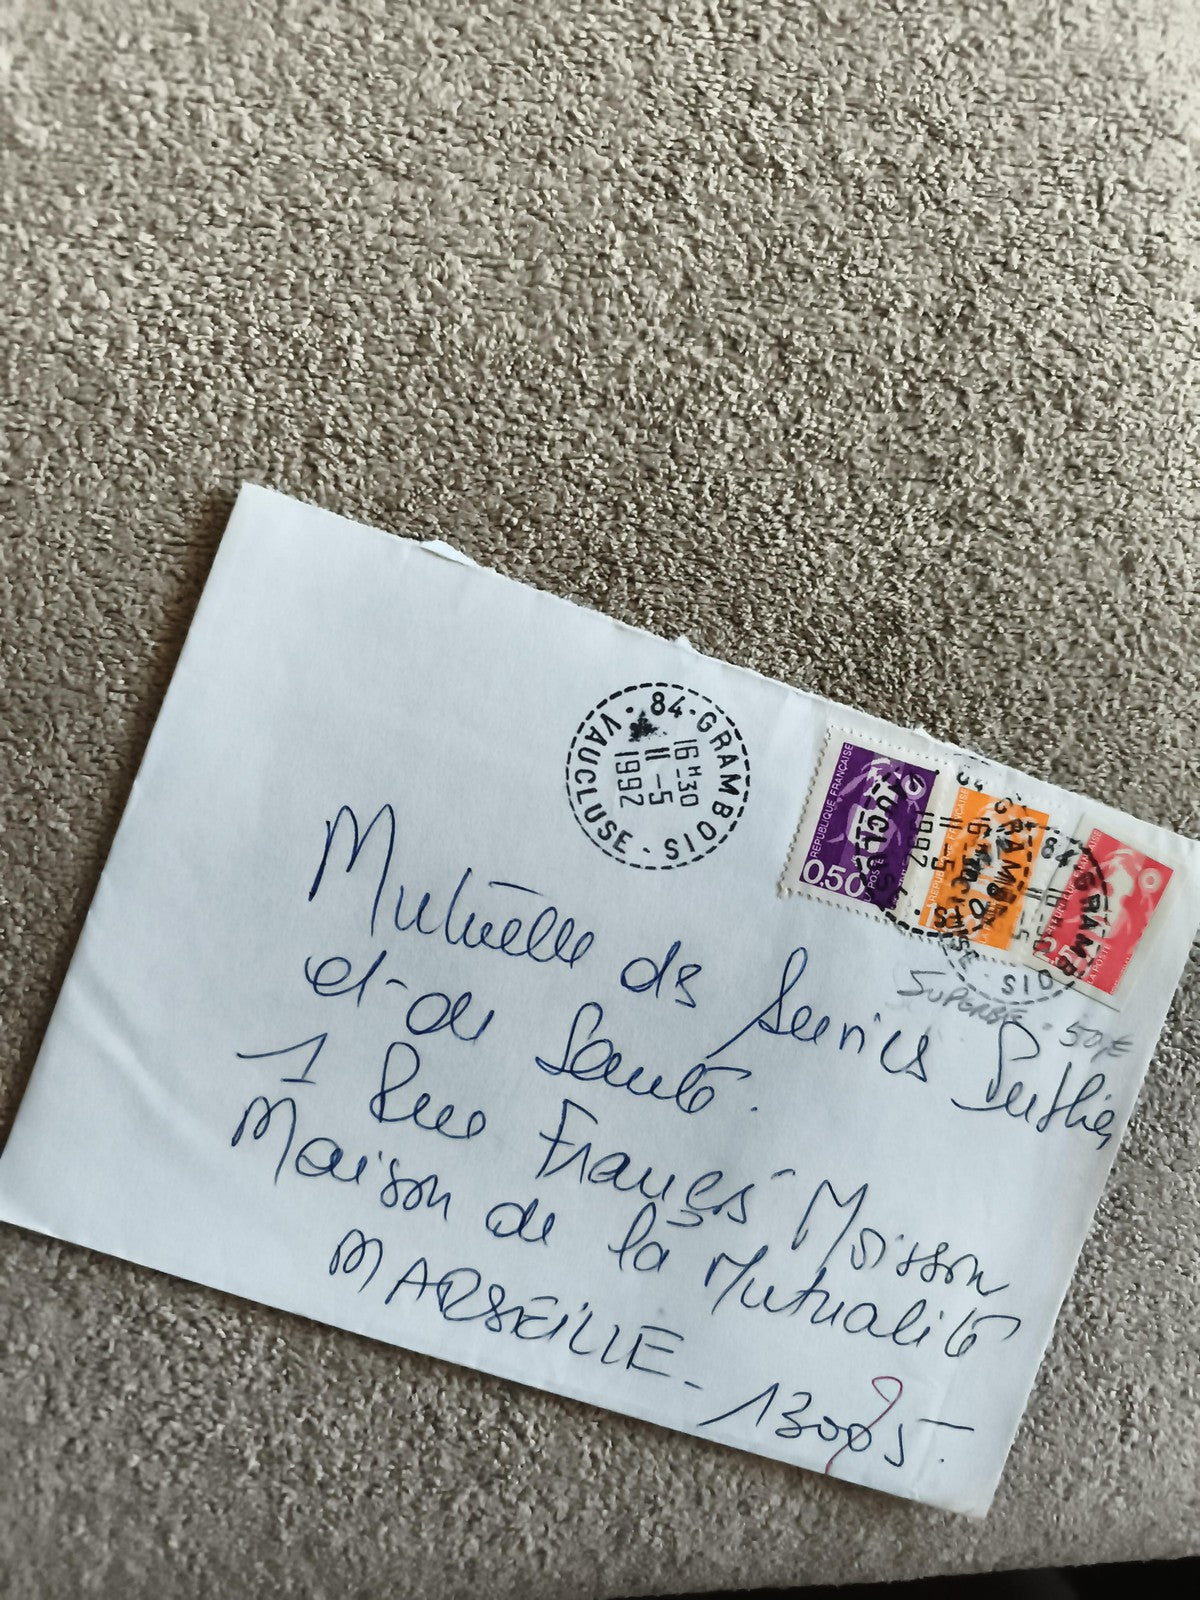 84-GRAMBOIS
16H30
11-5
1992
VAUCLUSE
REPUBLIQUE FRANÇAISE
0,50
LA POSTE
1992
11-5
16H
84 GRAMBOIS
SUPERBE - 50
Mutuelle des Services Publics
et de Santé.
1 Rue Francis Moisson
Maison de la Mutualité
MARSEILLE - 13005.